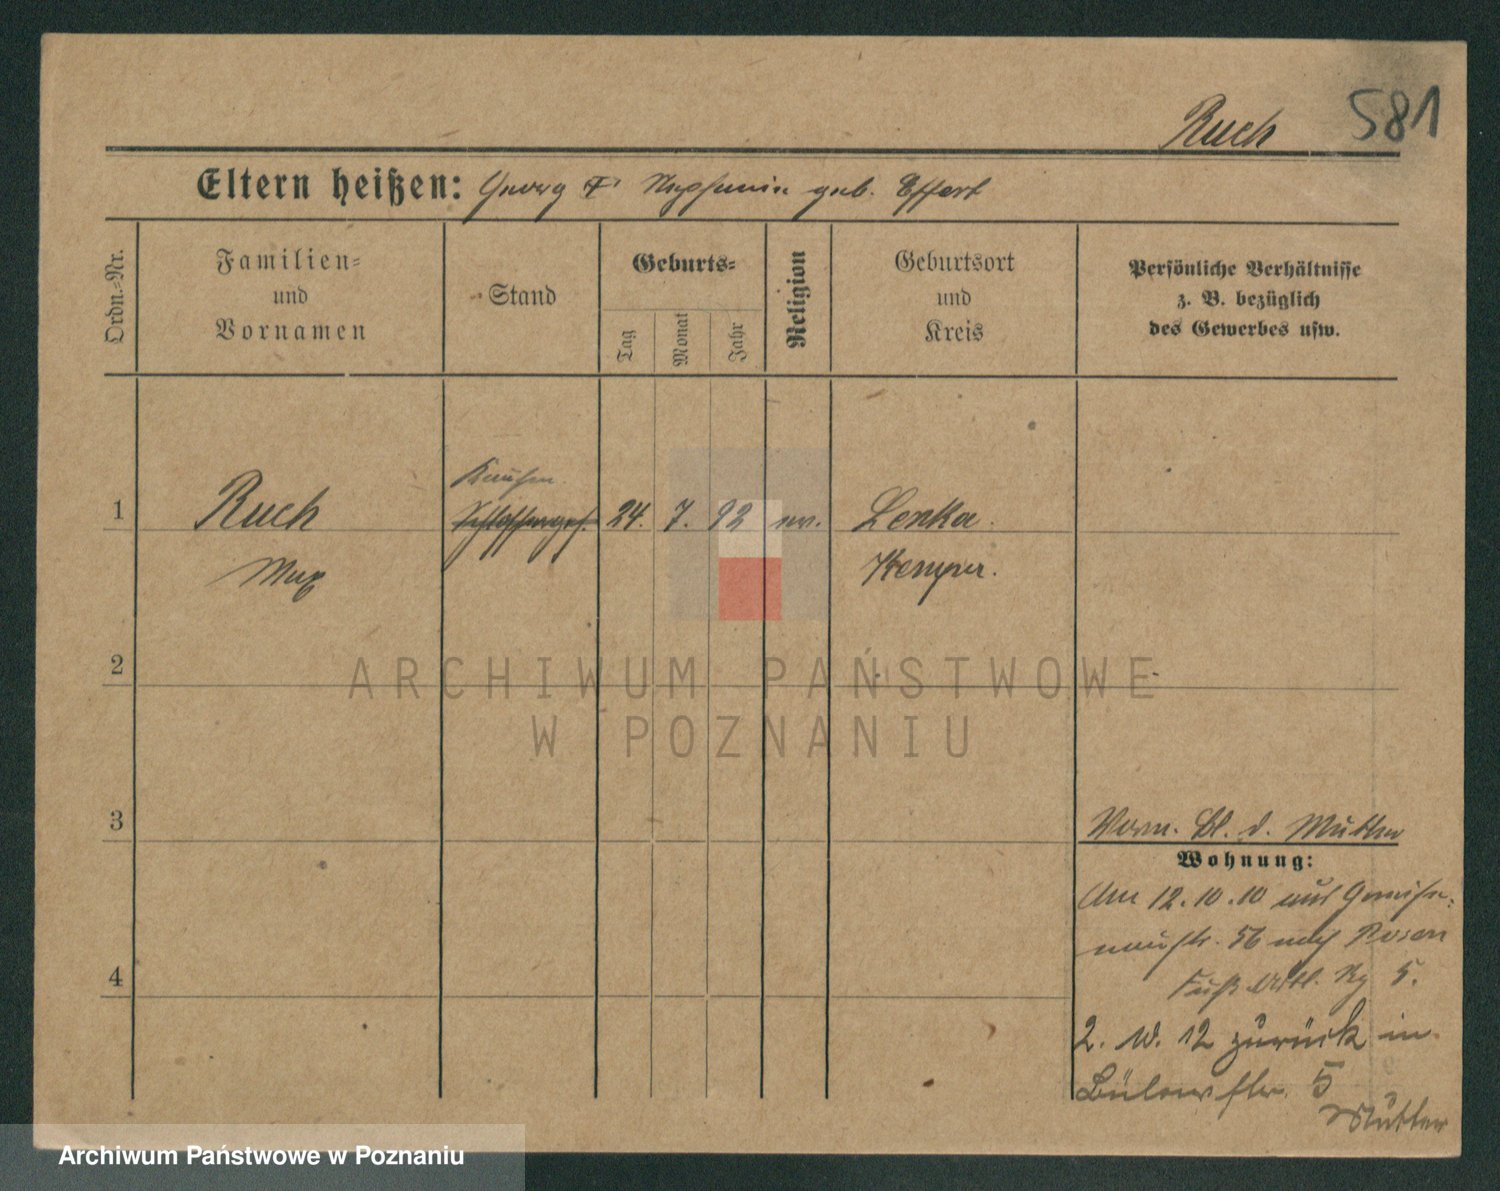 Ruch 581
Eltern heißen: Georg geb. Effert
Ordn.-Nr.
Familien-
und
Vornamen
Stand
Geburts-
Tag
Monat
Jahr
Religion
Geburtsort
und
Kreis
Persönliche Verhältnisse
z. B. bezüglich
des Gewerbes usw.
Kaufm.
1 Ruch Schlosserges. 24. 7. 92 ev. Lenka
Max Kempen.
2
3
4
Vorm. Bl. d. Mutter
Wohnung:
Am 12.10.10 aus Gneise-
naustr. 56 nach Posen
Fuß Artl. Rg 5.
2. 10. 12 zurück in
Bülowstr. 5
Mutter
ARCHIWUM PAŃSTWOWE
W POZNANIU
Archiwum Państwowe w Poznaniu